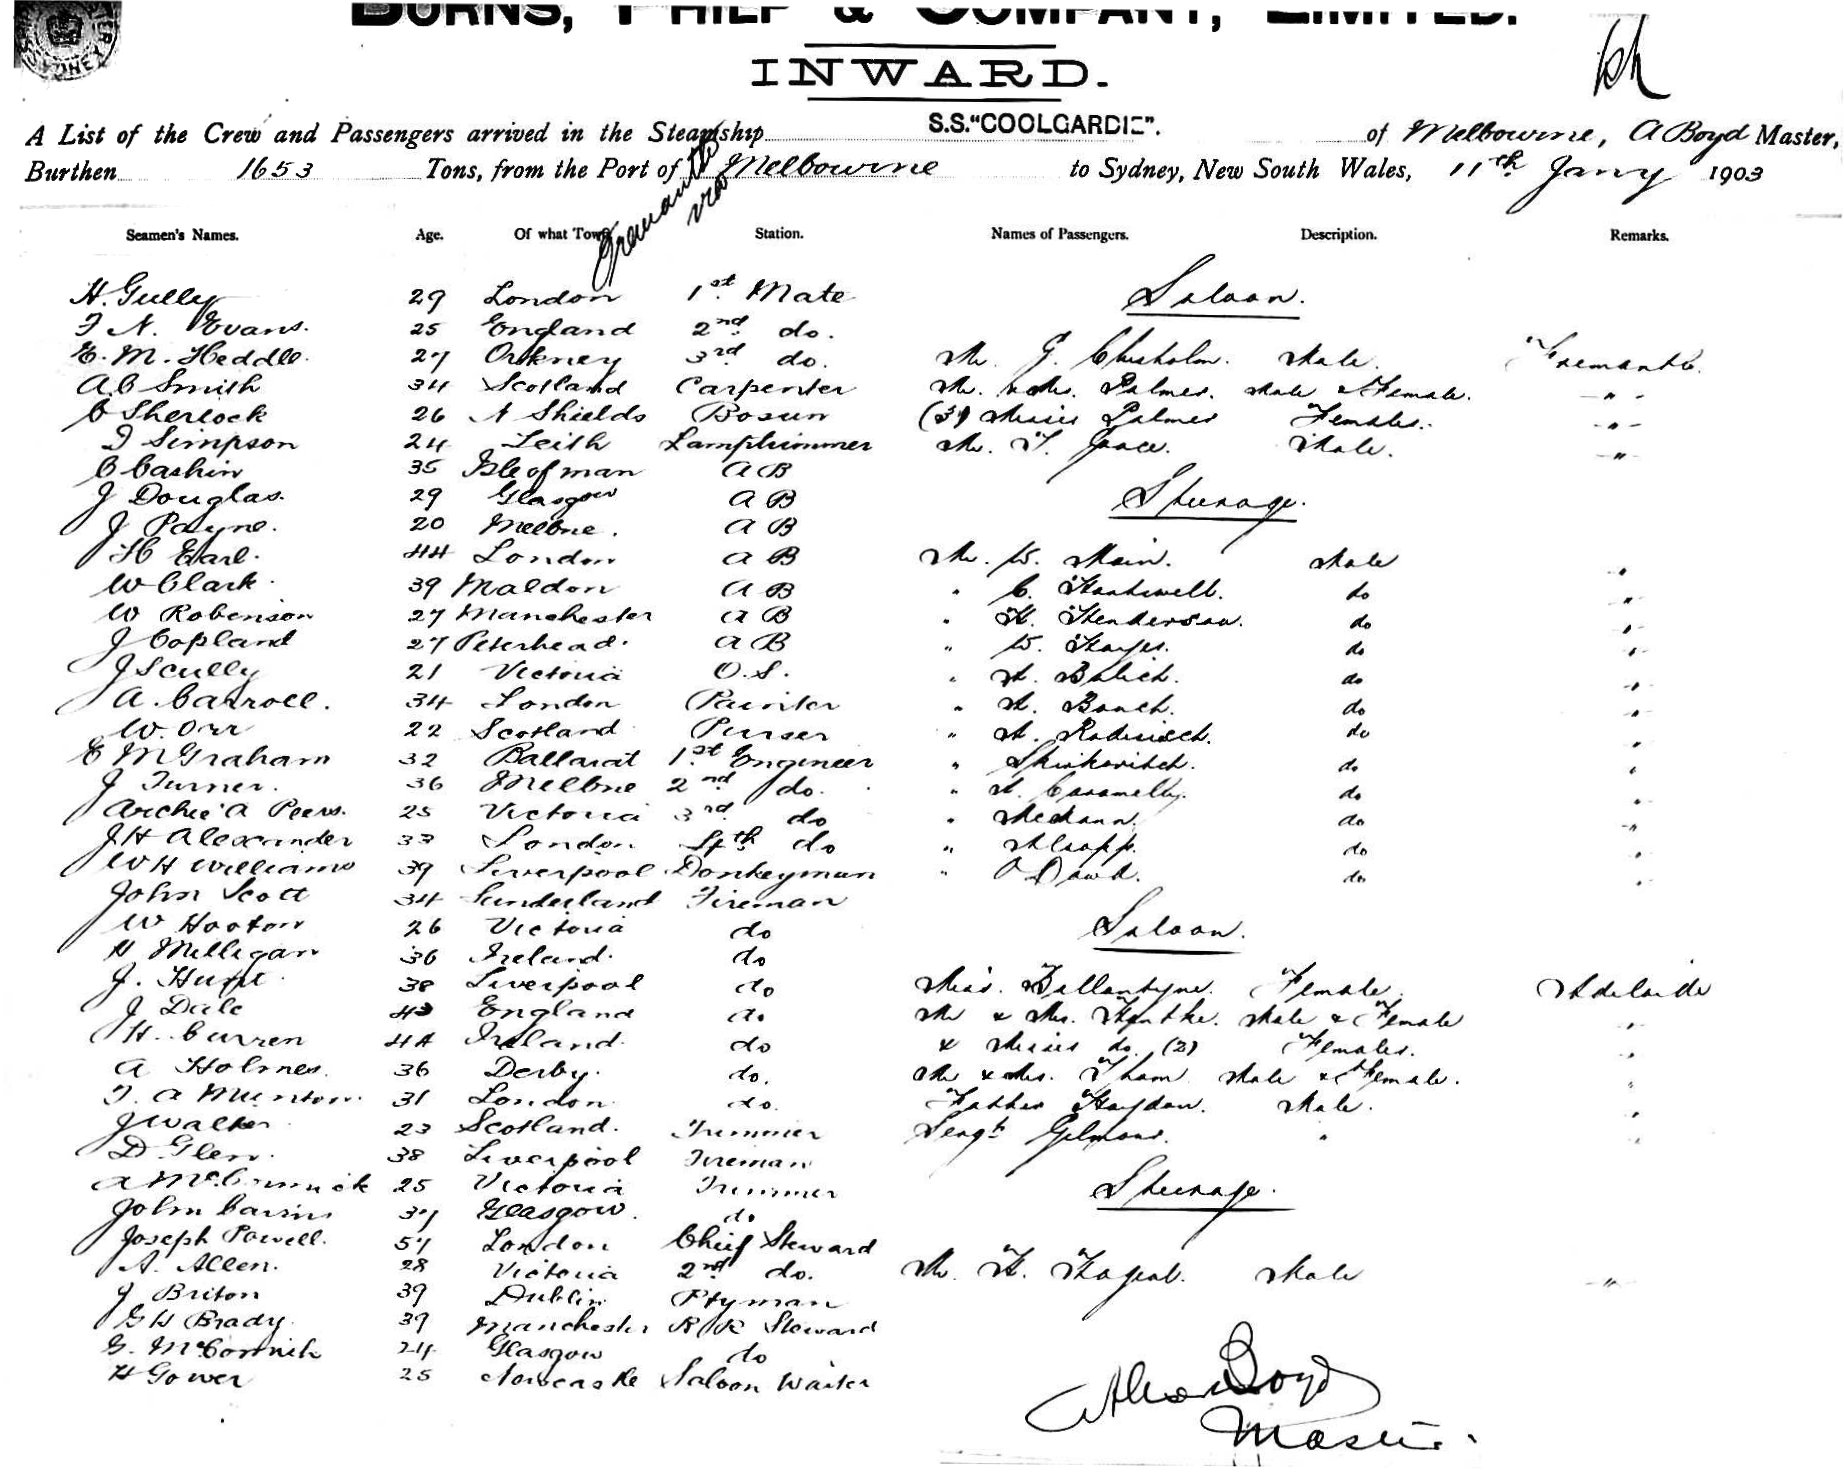 BURNS, PHILP & COMPANY, LIMITED.
INWARD.
A List of the Crew and Passengers arrived in the Steamship S.S."COOLGARDIE". of Melbourne, A Boyd Master,
Burthen 1653 Tons, from the Port of Fremantle via Melbourne to Sydney, New South Wales, 11th Jany 1903
Seamen's Names. Age. Of what Town Station. Names of Passengers. Description. Remarks.
H. Gully 29 London 1st Mate Saloon.
F N. Evans. 25 England 2nd do.
E. M. Heddle. 27 Orkney 3rd do. Mr. G. Chisholm. Male. Fremantle.
A C Smith 34 Scotland Carpenter Mr. & Mrs. Palmer. Male & Female. - " -
C Sherlock 26 N Shields Bosun (3) Misses Palmer Females. - " -
J Simpson 24 Leith Lamptrimmer Mr. T. Joace. Male. - " -
C Cashin 35 Isle of man A B
J Douglas. 29 Glasgow A B Steerage.
J Payne. 20 Melbne. A B
H Earl. 44 London A B Mr. W. Main. Male "
W Clark. 39 Maldon A B " C. Hartwell. do "
W Robinson 27 Manchester A B " H. Henderson. do "
J Copland 27 Peterhead. A B " W. Hayes. do "
J Scully 21 Victoria O.S. " A. do "
A. Carroll. 34 London Painter " A. do "
W. Orr 22 Scotland Purser " A. do "
E McGraham 32 Ballarat 1st Engineer " do "
J Turner. 36 Melbne 2nd do. " A. do "
Archie A Peers. 25 Victoria 3rd do " do "
J H Alexander 33 London 4th do " Alsopp. do "
W H Williams 39 Liverpool Donkeyman " do "
John Scott 34 Sunderland Fireman
W Hooton 26 Victoria do Saloon.
H Milligan 36 Ireland. do
J. Hunt. 38 Liverpool do Miss. Ballantyne. Female. Adelaide
J Dale 43 England do Mr & Mrs. Male & Female "
H. Curren 44 Ireland. do & Misses do (2) Females. "
A Holmes. 36 Derby. do. Mr & Mrs. Tham Male & Female. "
F. A Munton. 31 London. do. Father Haydon. Male. "
J Walker 23 Scotland. Trimmer Sergt Gilmour. " "
D Glen. 38 Liverpool Fireman
A McCormick 25 Victoria Trimmer Steerage.
John 37 Glasgow. do
Joseph Powell. 57 London Chief Steward
A. Allen. 28 Victoria 2nd do. Mr. H. Male "
J Briton 39 Dublin Ptyman
G H Brady. 39 Manchester R R Steward
G. McCormick 24 Glasgow do
H Gower 25 Newcastle Saloon Waiter
Alex Boyd
Master.